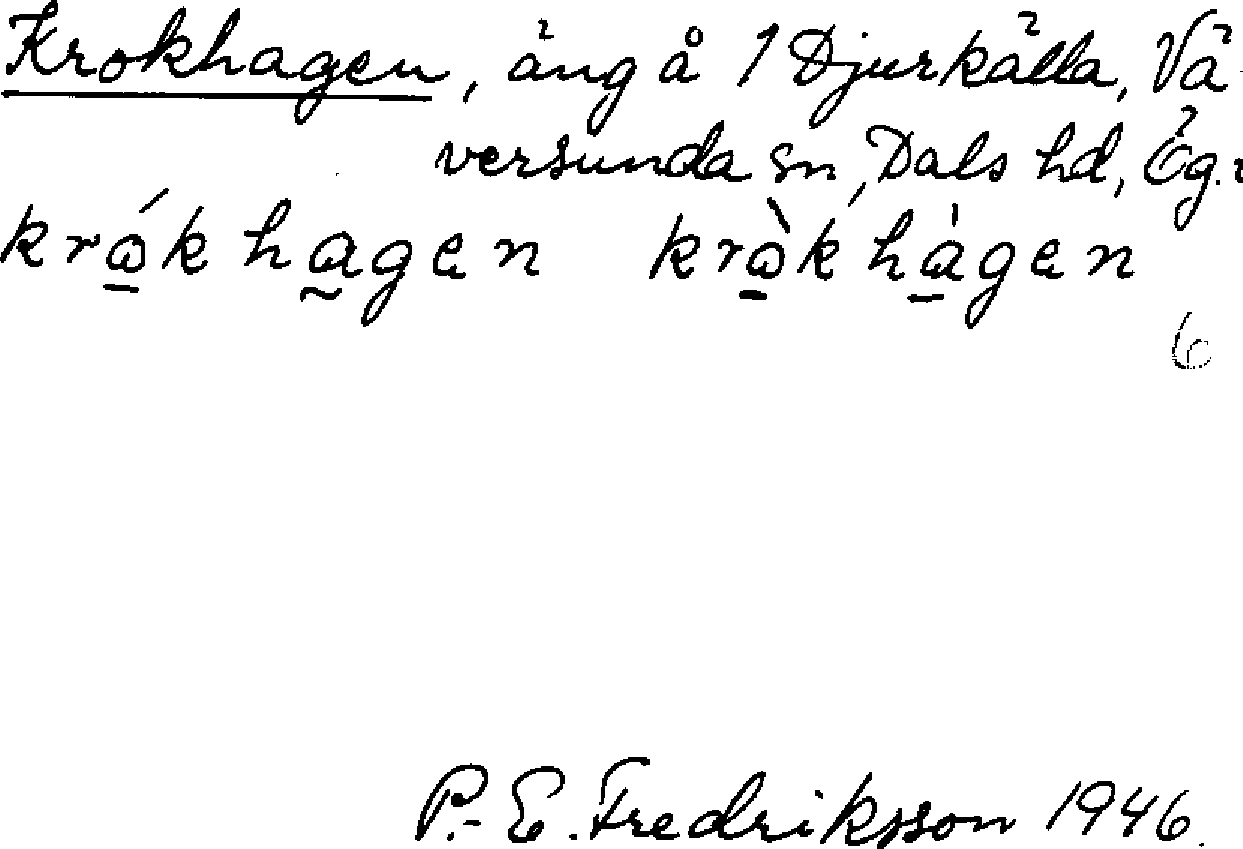 Krokhagen, äng å 1 Djurkälla, Vä-
versunda sn, Dals hd, Ög.
krók hagen kròk hàgen
6
P.-E. Fredriksson 1946.